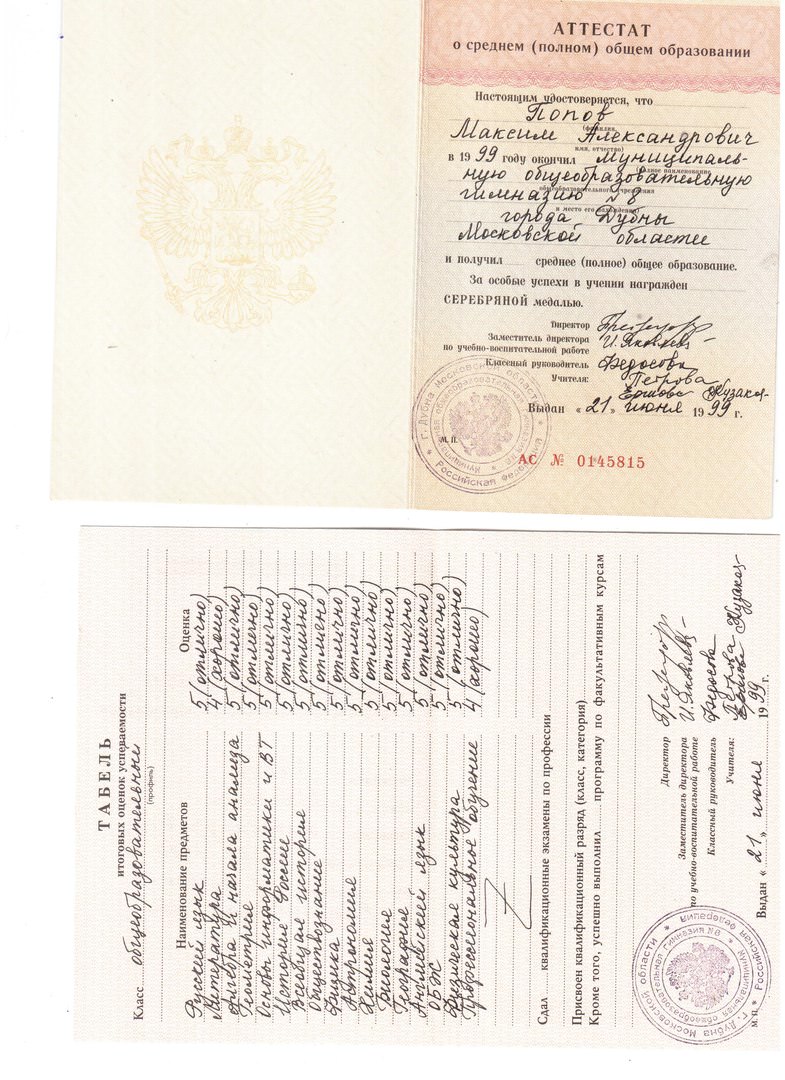 АТТЕСТАТ
о среднем (полном) общем образовании
Настоящим удостоверяется, что
Попов
(фамилия,
Максим Александрович
имя, отчество)
в 1999 году окончил муниципаль-
(полное наименование
ную общеобразовательную
общеобразовательного учреждения
гимназию №8
и место его нахождения)
города Дубны
Московской области
и получил среднее (полное) общее образование.
За особые успехи в учении награжден
СЕРЕБРЯНОЙ медалью.
Директор
Заместитель директора
по учебно-воспитательной работе И.Яковлев
Классный руководитель Федосова
Учителя: Петрова
Ершова
Выдан «21» июня 1999 г.
М.П.
АС № 0145815
ТАБЕЛЬ
итоговых оценок успеваемости
Класс общеобразовательный
(профиль)
Наименование предметов Оценка
Русский язык 5 (отлично)
Литература 4 (хорошо)
Алгебра и начала анализа 5 (отлично)
Геометрия 5 (отлично)
Основы информатики и ВТ 5 (отлично)
История России 5 (отлично)
Всеобщая история 5 (отлично)
Обществознание 5 (отлично)
Физика 5 (отлично)
Астрономия 5 (отлично)
Химия 5 (отлично)
Биология 5 (отлично)
География 5 (отлично)
Английский язык 5 (отлично)
ОБЖ 5 (отлично)
Физическая культура 5 (отлично)
Профессиональное обучение 4 (хорошо)
Сдал квалификационные экзамены по профессии
Присвоен квалификационный разряд (класс, категория)
Кроме того, успешно выполнил программу по факультативным курсам
Директор
Заместитель директора
по учебно-воспитательной работе И.Яковлев
Классный руководитель Федосова
Учителя: Петрова
Ершова
Выдан «21» июня 1999 г.
М.П.